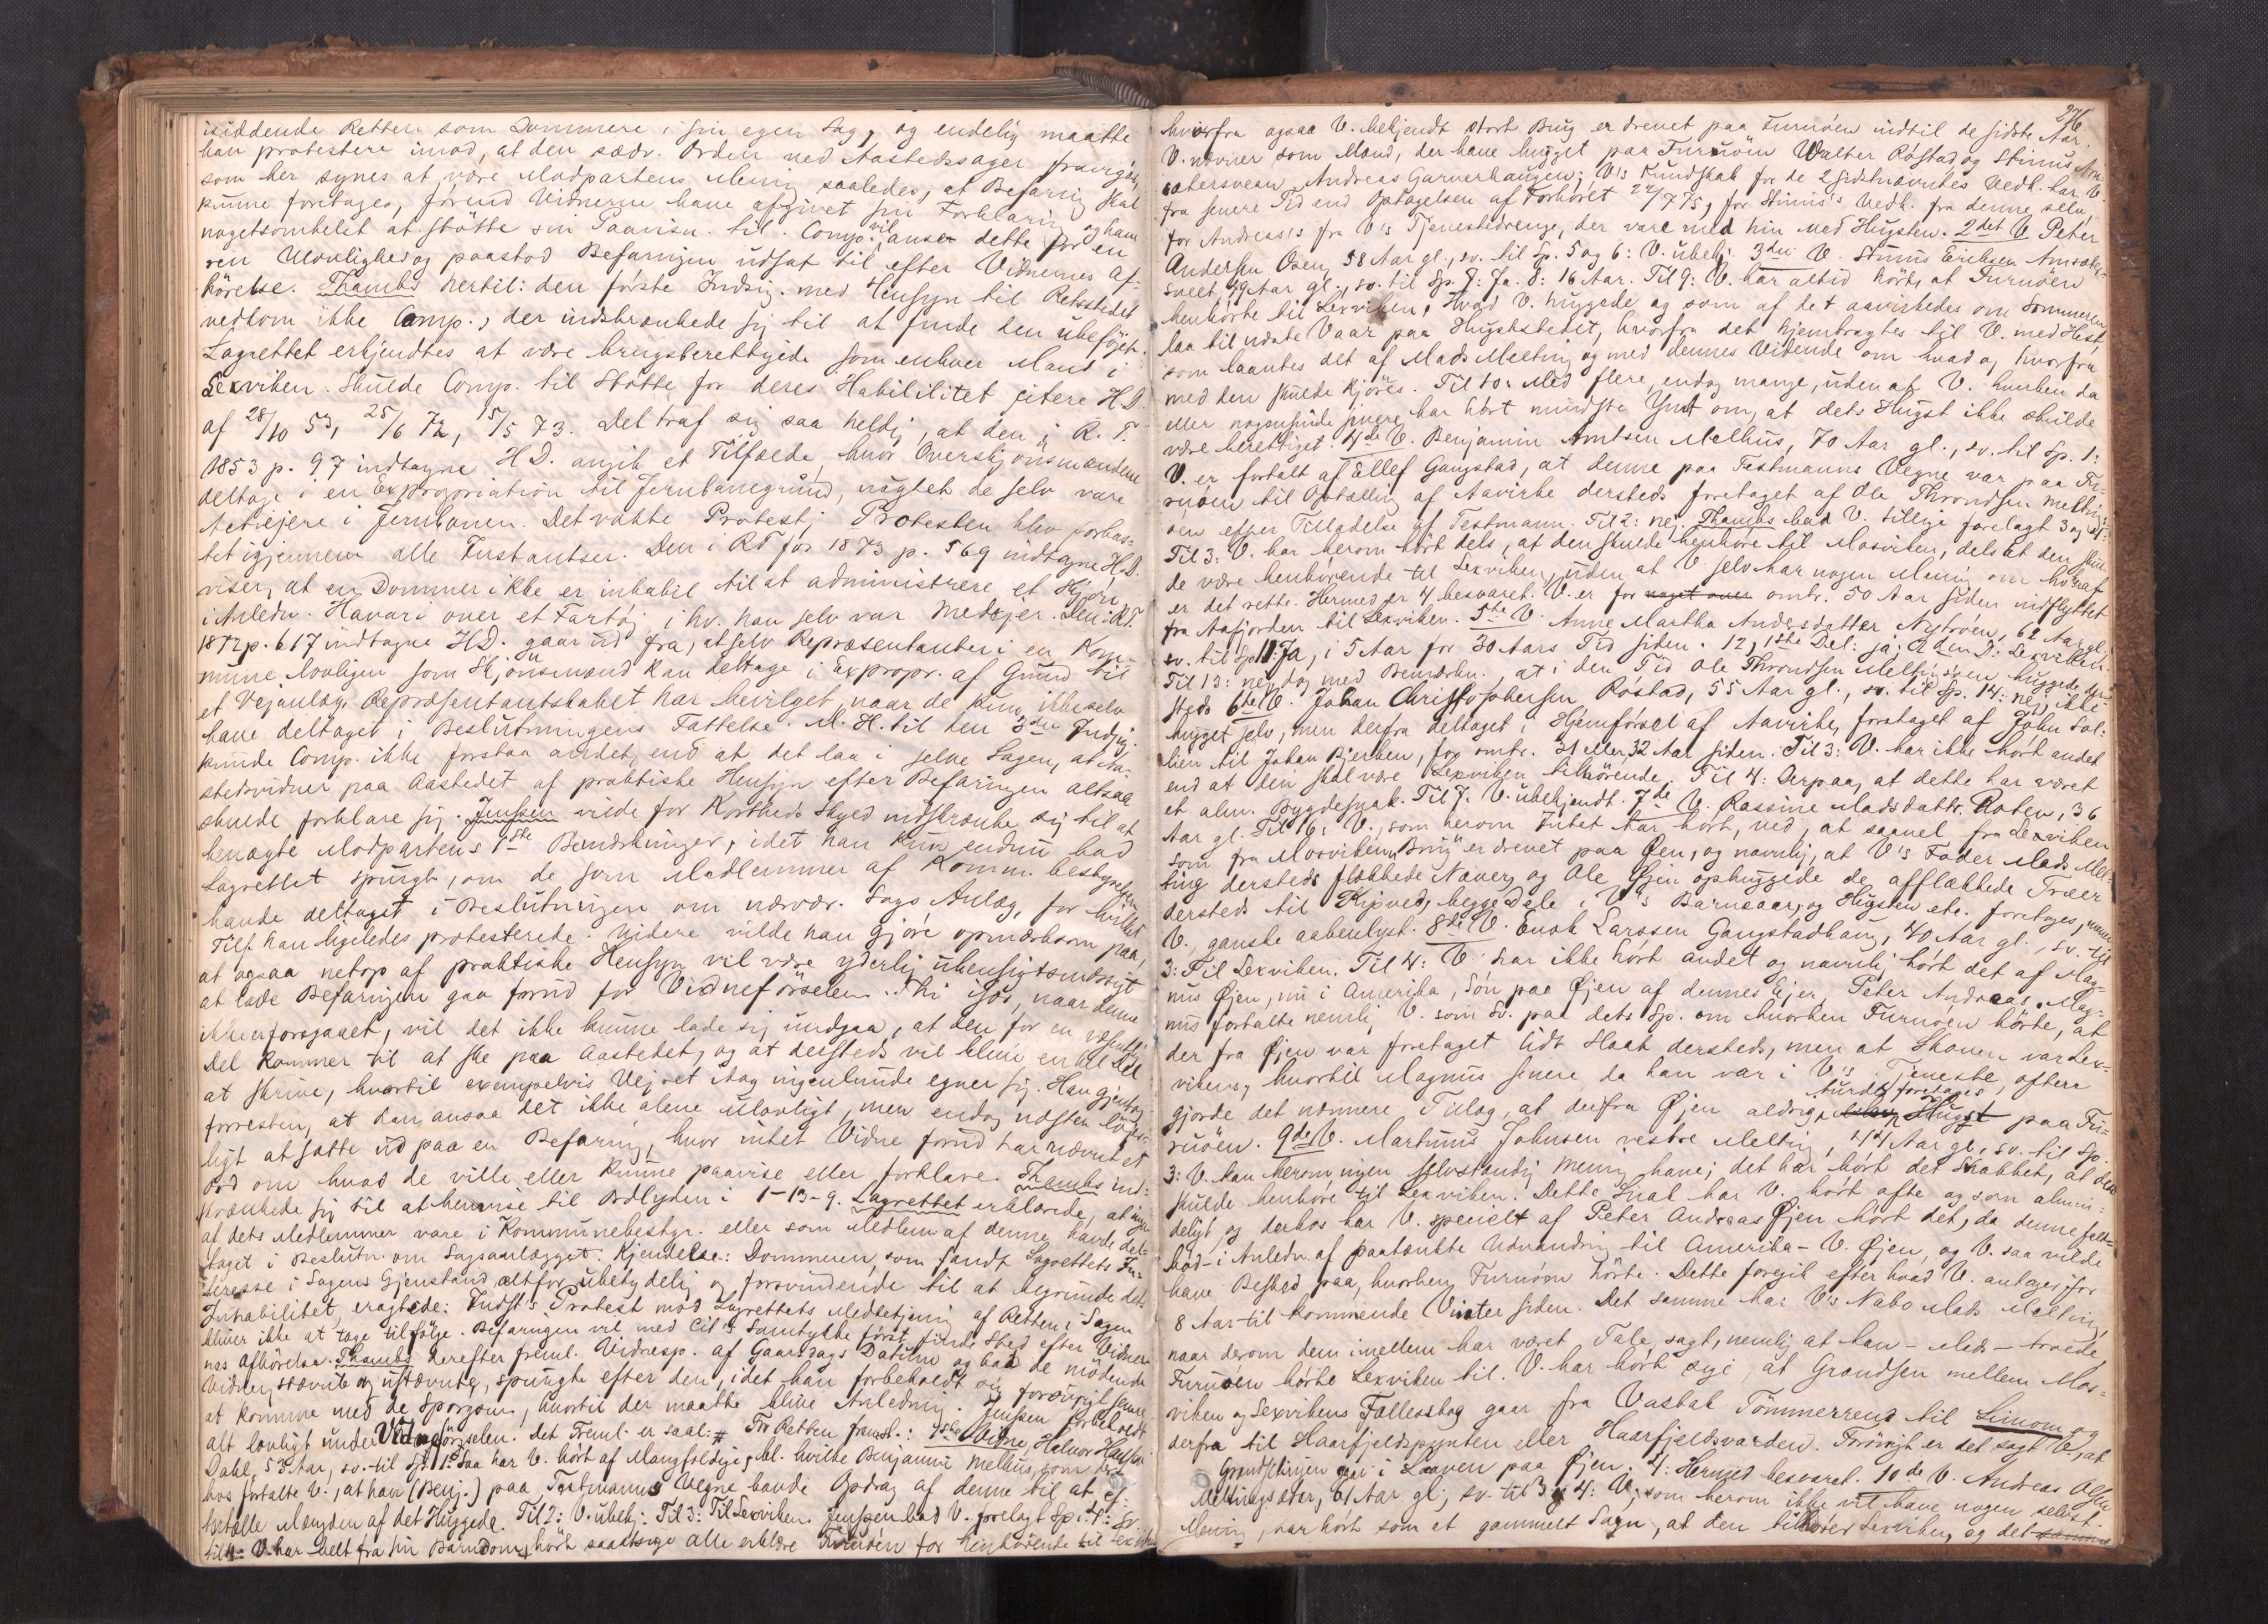 isiddende Retten som Dommere i sin egen Sag, og endelig maatte
han protestere imod, at den sædv. Orden ved Aastedssager fravigës,
som her synes at være Modpartens Mening saaledes, at Befaring skal
kunne foretages, førend Vidnerne have afgivet sin Forklaring og have
nogetsomhelst at støtte sin Paavisn. til. Comp. vil anse dette for en
ren Ulovlighed og paastod Befaringen udsat til efter Vidnernes Af-
hørelse. Thambs hertil: den første Indsig. med Hensyn til Retsstedet
vedkom ikke Comp., der indskrænkede sig til at finde den ubeføjet.
Lagrettet erkjendtes at være brugsberettigede som enhver Mand i
Lexviken. Skulde Comp. til Støtte for deres Habililitet citere H.D.
af 28/10 53, 25/6 72, 15/5 73. Det traf sig saa heldig, at den i R.T.
1853 p. 97 indtagne H.D. angik et Tilfælde, hvor Overskjønsmændene
deltoge i en Expropriation til Jernbanegrund, uagtet de selv vare
Actieejere i Jernbanen. Det vakte Protest; Protesten blev forkas-
tet igjennem alle Instantser. Den i RT for 1873 p. 569 indtagne H.D.
viser, at en Dommer ikke er inhabil til at administrere et Skjøn
i Anledn. Havari over et Fartøj i hv. han selv var Medejer. Den i RT.
1872 p. 617 indtagne H.D. gaar ud fra, at selv Repræsentanter i en Kom-
mune lovligen som Skjønsmænd kan deltage i Expropr. af Grund til
et Vejanlæg, Repræsentantskabet har bevilget, naar de kun ikke selv
have deltaget i Beslutningens Fattelse. M. H. til den 3die Indsig.
kunde Comp. ikke forstaa andet, end at det laa i selve Sagen, at Aa-
stedsvidner paa Aastedet af praktiske Hensyn efter Befaringen altsaa
skulde forklare sig. Jenssen vilde for Kortheds Skyld indskrænke sig til at
benægte Modpartens 1ste Bemærkninger, idet han kun endnu bad
Lagrettet spurgt, om de som Medlemmer af Komm. bestyrelsen
havde deltaget i Beslutningen om nærvær. Sags Anlæg, for hvilket
Tilf. han ligeledes protesterede. Videre vilde han gjøre opmærksom paa,
at ogsaa netop af praktiske Hensyn vil være yderlig uhensigtsmæssigt
at lade Befaringen gaa forud for Vidneførselen. Thi ifør, naar denne
ikke er foregaaet, vil det ikke kunne lade sig undgaa, at den for en væsentlig
Del kommer til at ske paa Aastedet, og at dersteds vil blive en hel Del
at skrive, hvortil exempelvis Vejret idag ingenlunde egner sig. Han gjentog
forresten, at han ansaa det ikke alene ulovligt, men endog næsten løjer-
ligt at sætte ud paa en Befaring, hvor intet Vidne forud har nævnt et
Ord om hvad de ville eller kunne paavise eller forklare. Thambs ind-
skrænkede sig til at henvise til Ordlyden i 1-13-9. Lagrettet erklærede, at ingen
af dets Medlemmer vare i Kommunebestyr. eller som Medlem af denne havde del-
taget i Beslutn. om Sagsanlægget. Kjendelse: Dommeren, som fandt Lagrettets In-
teresse i Sagens Gjenstand altfor ubetydelig og forsvindende til at begrunde dets
Inhabilitet, eragtede: Indst's Protest mod Lagrettets Medbetjening af Retten i Sagen
bliver ikke at tage tilfølge. Befaringen vil med Cit's Samtykke først finde Sted efter Vidner-
nes Afhørelse. Thambs derefter freml. Vidnesp. af Gaarsdags Datum og bad de mødende
Vidner, stævnte og ustævnte, spurgte efter den, idet han forbeholdt sig forøvrigt senere
at komme med de Spørgsm., hvortil der maatte blive Anledning. Jenssen forbeholdt
alt lovligt under Vidneførselen. Det Freml. er saal: # For Retten fremst.: 1ste Vidne, Halvor Hansen
Dahl, 53 Aar, sv. til Sp. 1: Saa har V. hørt af Mangfoldige, bl. hvilke Benjamin Melhus, som der-
hos fortalte V., at han (Benj.) paa Testmanns Vegne havde Opdrag af denne til at ef-
tertælle Mængden af det Huggede. Til 2: V. ubekj. Til 3: Til Lexviken. Jenssen bad V. forelagt Sp. 4: Sv.
til 4: V. har helt fra sin Barndom hørt saatsige alle erklære Furuøen for henhørende til Lexviken
276
hvorfra ogsaa V. bekjendt stort Brug er drevet paa Furuøen indtil de sidste Aar.
V. nævner som Mænd, der have hugget paa Furuøen Walter Røstad og Stinus Am-
sabersveen, Andreas Garverhaugen; V's Kundskab for de 2 sidstnævntes Vedk. har V.
fra senere Tid end Optagelsen af Forhøret 22/7 75, for Stinus's Vedk. fra denne selv,
for Andreas's fra V's Tjenestedrenge, der vare med hin ved Hugsten. 2det V. Peter
Andersen Oven, 58 Aar gl., sv. til Sp. 5 og 6: V. ubekj. 3die V. Stinus Eriksen Amsaker-
sveet, 49 Aar gl., sv. til Sp. 7: Ja. 8: 16 Aar. Til 9: V. har altid hørt, at Furuøen
henhørte til Lexviken. Hvad V. huggede og som af det aavirkedes om Sommeren
laa til næste Vaar paa Hugststedet, hvorfra det hjembragtes til V. med Hest,
som laantes dit af Mads Melting og med dennes Vidende om hvad og hvorfra
med den skulde kjøres. Til 10: Med flere, endog mange, uden at V. hverken da
eller nogensinde senere har hørt mindste Ymt om, at dets Hugst ikke skulde
være berettiget. 4de V. Benjamin Arntsen Melhus, 70 Aar gl., sv. til Sp. 1:
V. er fortalt af Ellef Gangstad, at denne paa Testmanns Vegne var paa Fu-
ruøen til Optælling af Aavirke dersteds foretaget af Ole Throndsen Melting-
oen efter Tilladelse af Testmann. Til 2: nej. Thambs bad V. tillige forelagt 3 og 4:
Til 3: V. har herom hørt dels, at den skulde henhøre til Mosviken, dels at den skul-
de være henhørende til Lexviken, uden at V. selv har nogen Mening om hvoraf
er det rette. Hermed er 4 besvaret. V. er for noget over omtr. 50 Aar siden indflyttet
fra Aafjorden til Lexviken. 5te V. Anne Martha Andersdatter Nytrøen, 62 Aar gl.,
sv. til Sp. 11: Ja, i 5 Aar for 30 Aars Tid siden. 12, 1ste Del: ja; 2den D: Lexviken.
Til 13: nej, dog med Bemærkn. at i den Tid Ole Throndsen Meltingsøen huggede der-
steds. 6te V. Johan Christophersen Røstad, 55 Aar gl., sv. til Sp. 14: nej, ikke
hugget selv, men derfra deltaget i Hjemførsel af Aavirke, foretaget af John Sol-
lien til Johan Bjerken, for omtr. 31 eller 32 Aar siden. Til 3: V. har ikke hørt andet
end at den skal være Lexviken tilhørende. Til 4: Derpaa, at dette har været
et alm. Bygdesnak. Til 7: V. ubekjendt. 7de V. Rassine Madsdatter Roten, 36
Aar gl. Til 16: V., som herom Intet har hørt, ved, at saavel fra Lexviken
som fra Mosviken „Brug" er drevet paa Øen, og navnlig, at V's Fader Mads Mel-
ting dersteds flækkede Næver, og Ole Øjen ophuggede de afflækkede Træer
dersteds til Kipved, begge Dele i V's Barneaar, og Hugsten etc. foretoges, mener
V., ganske aabenlyst. 8de V. Enok Larssen Gangstadhaug, 40 Aar gl., sv. til
3: Til Lexviken. Til 4: V. har ikke hørt andet og navnlig hørt det af Mag-
nus Øjen, nu i Amerika, Søn paa Øjen af dennes Ejer, Peter Andreas. Mag-
nus fortalte nemlig V. som Sv. paa dets Sp. om hvorhen Furuøen hørte, at
der fra Øjen var foretaget lidt Haak dersteds, men at Skoven var Lex-
vikens, hvortil Magnus senere, da han var i V's Tjeneste, oftere
gjorde det nærmere Tillæg, at derfra Øjen aldrig turde foretages Hugst paa Fu-
ruøen. 9de V. Martinus Johnsen vestre Melting, Aar gl., sv. til Sp.
3: V. kan herom ingen selvstændig Mening have; det har hørt det snakket, at den
skulde henhøre til Lexviken. Dette Snak har V. hørt ofte og som almin-
deligt, og derhos har V. specielt af Peter Andreas Øjen hørt det, da denne falb-
bød - i Anledn. af paatænkte Udvandring til Amerika - V. Øjen, og V. saa vilde
have Besked paa, hvorhen Furuøen hørte. Dette foregik efter hvad V. antager, for
8 Aar til kommende Vinter siden. Det samme har V's Nabo Mads Melting,
naar derom dem imellem har været Tale, sagt, nemlig at han - Mads - troede,
Furuøen hørte Lexviken til. V. har hørt sige, at Grændsen mellem Mos-
viken og Lexvikens Fællesskog gaar fra Vastak Tømmerrend til Limom og
derfra til Haarfjeldspynten eller Haarfjeldsvarden. Forøvrigt er det sagt V., at
Grændselinjen gaar i Laaven paa Øjen. 4: Hermed besvaret. 10de V. Andreas Olsen
Meltingsæter, 61 Aar gl., sv. til 3 og 4: V., som herom ikke vil have nogen selvst.
Mening, har hørt som et gammelt Sagn, at den tilhører Lexviken, og det samme